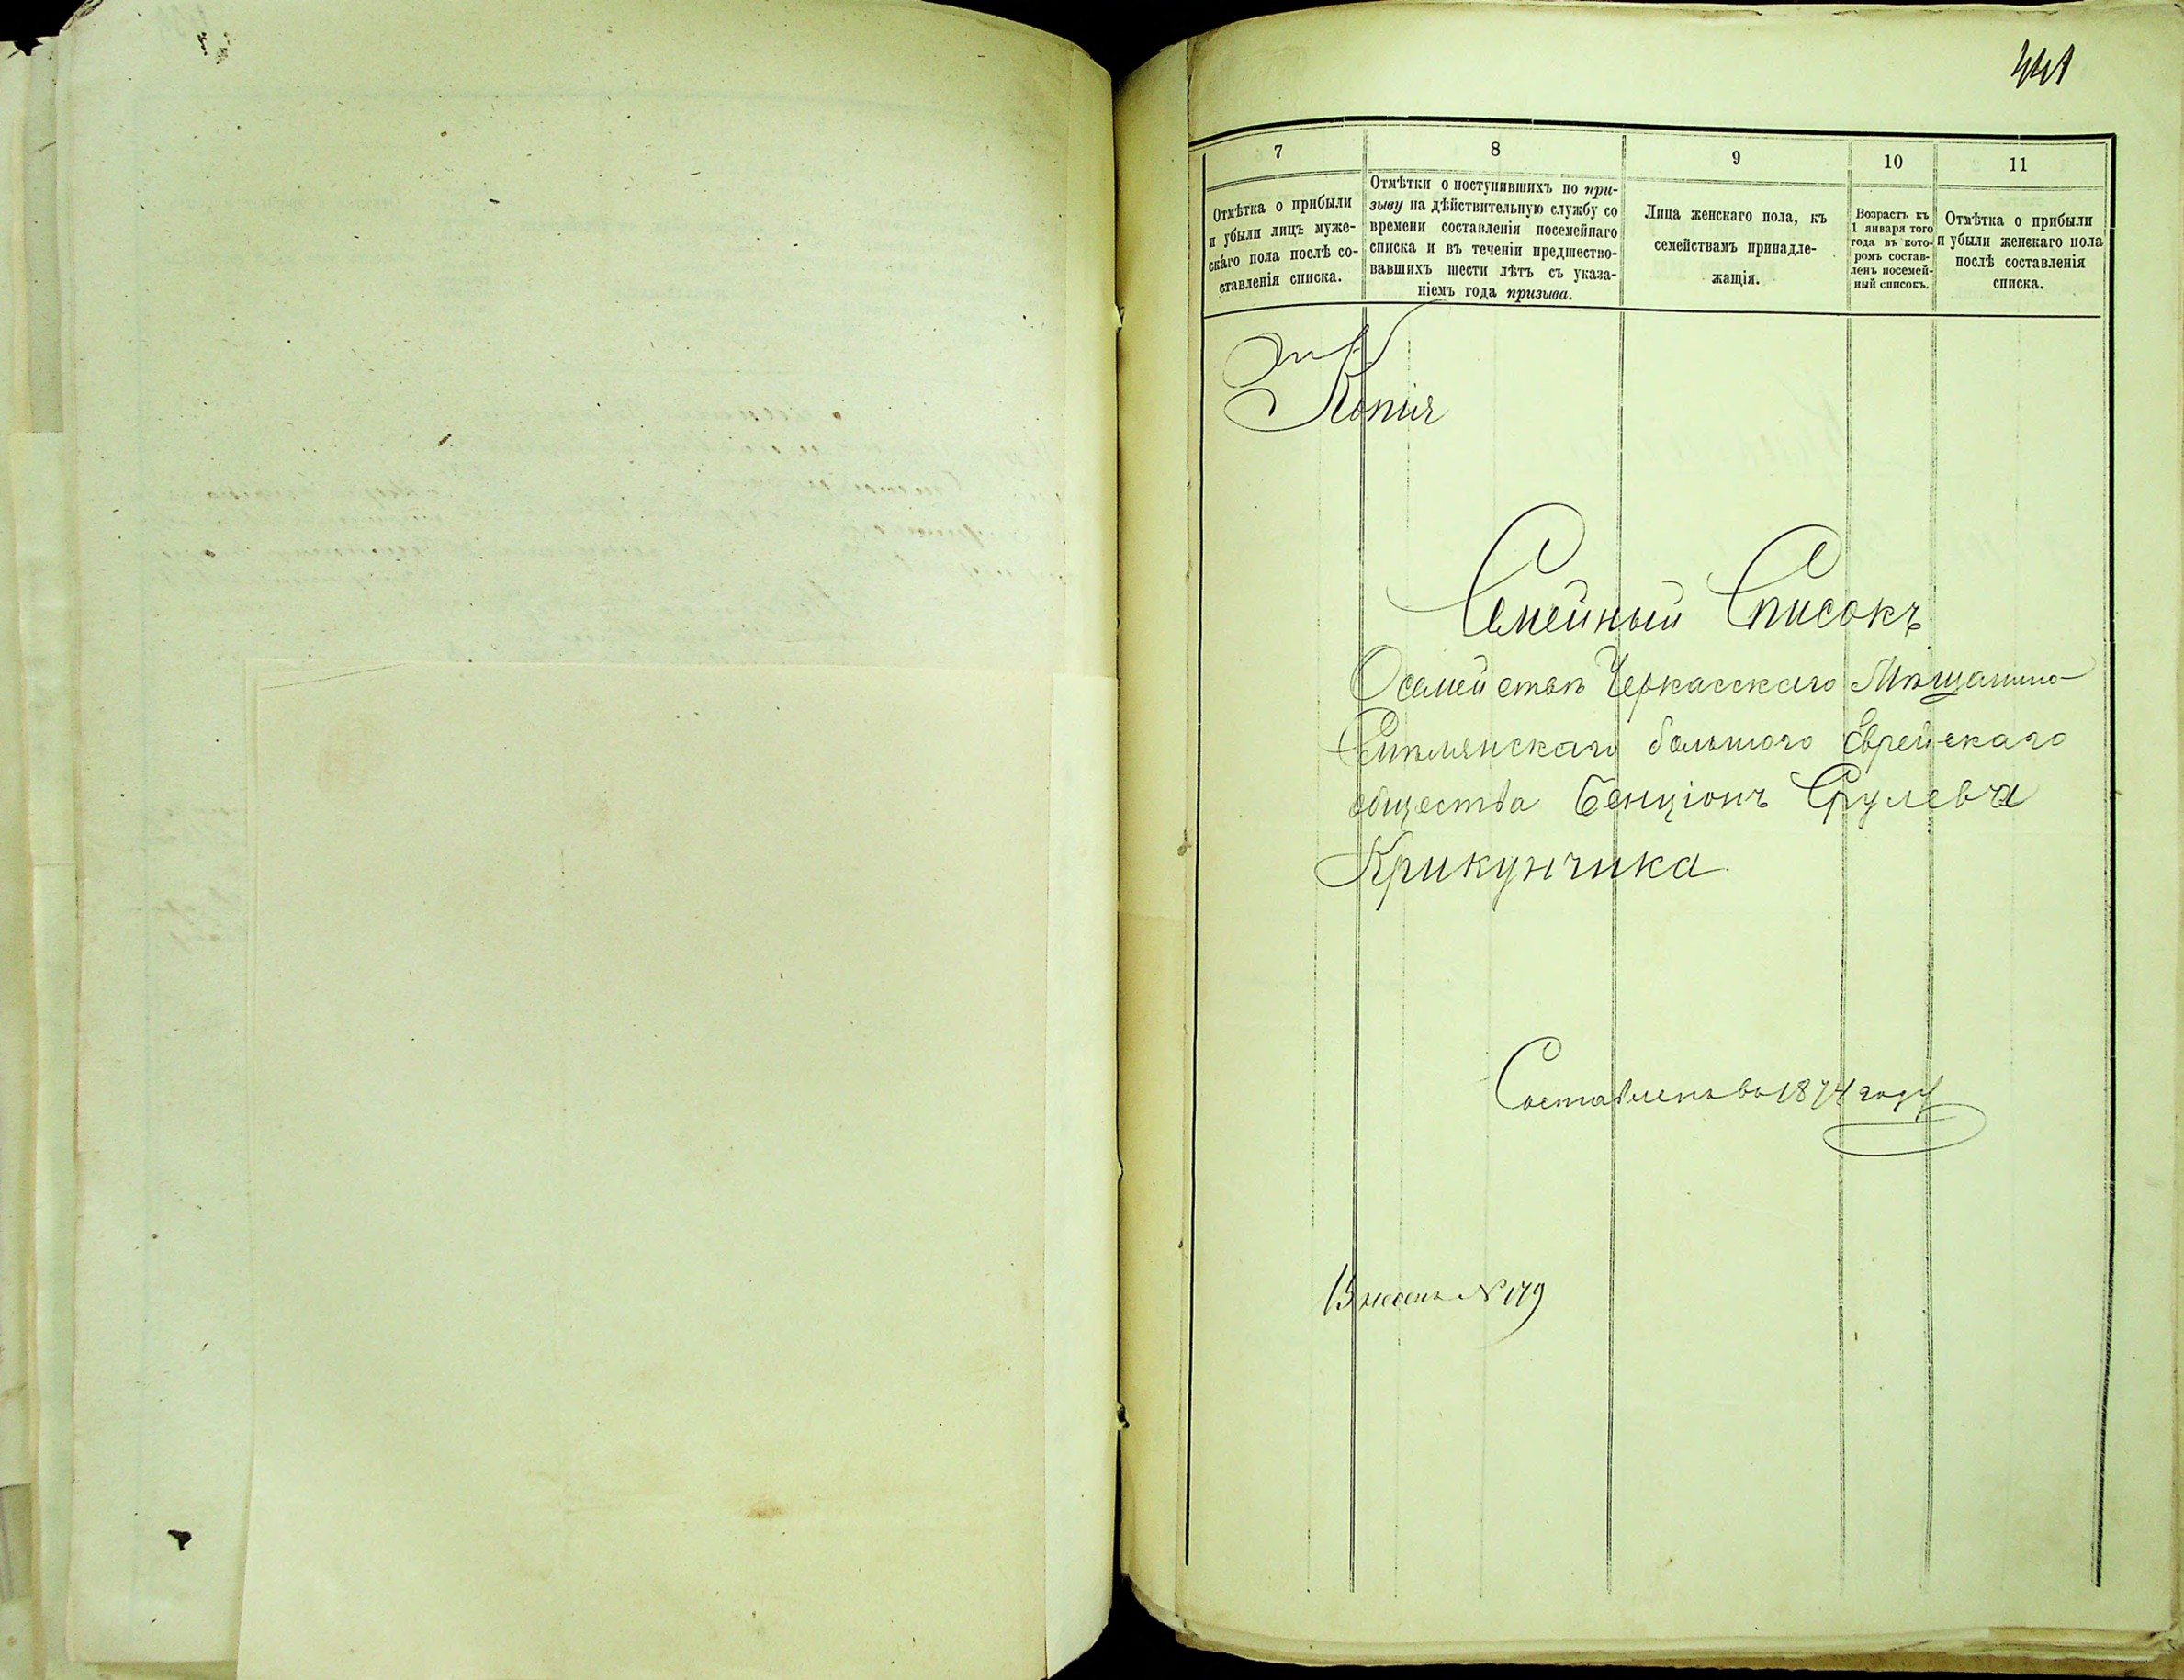 441
7
8
9
10
11
Отмѣтка о прибыли
и убыли лицъ муже-
скаго пола послѣ со-
ставленія списка.
Отмѣтки о поступившихъ по при-
зыву на дѣйствительную службу со
времени составленія посемейнаго
списка и въ теченіи предшество-
вавшихъ шести лѣтъ съ указа-
ніемъ года призыва.
Лица женскаго пола, къ
семействамъ принадле-
жащія.
Возрастъ къ
1 января того
года въ кото-
ромъ состав-
ленъ посемей-
ный списокъ.
Отмѣтка о прибыли
и убыли женскаго пола
послѣ составленія
списка.
Копия
Семейный Списокъ
О семействѣ Черкасскаго Мѣщанина
Смѣлянскаго большого Еврейскаго
общества Бенціонъ Срулевча
Крикунчика
Составленъ во 1874 году
Внесенъ № 179